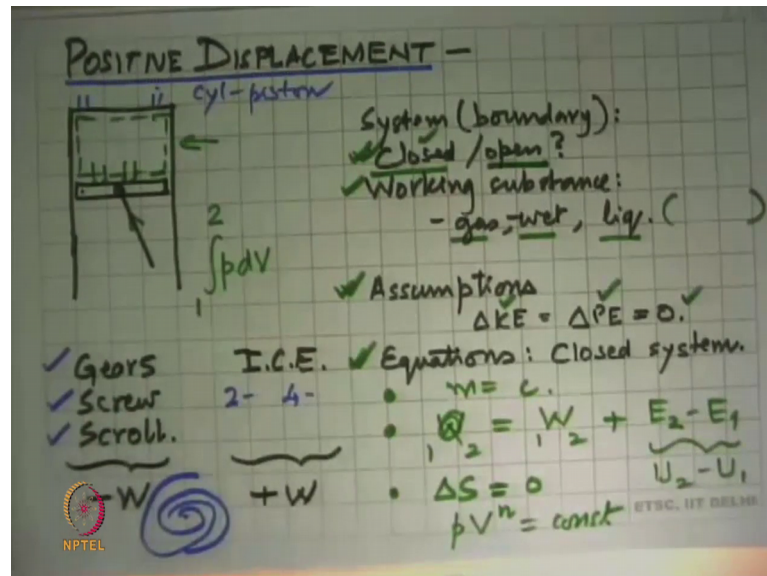 POSITIVE DISPLACEMENT –
cyl-piston
System (boundary):
✓Closed / open?
✓Working substance:
- gas, wet, liq. ( )
2
∫pdV
1
✓Assumptions
ΔKE = ΔPE = 0.
✓Gears
✓Screw
✓Scroll.
I.C.E.
2- 4-
-W
+W
✓Equations: Closed system.
• m = c.
• 1Q2 = 1W2 + E2 - E1
U2 - U1
• ΔS = 0
pVⁿ = const
ETSC, IIT DELHI
NPTEL